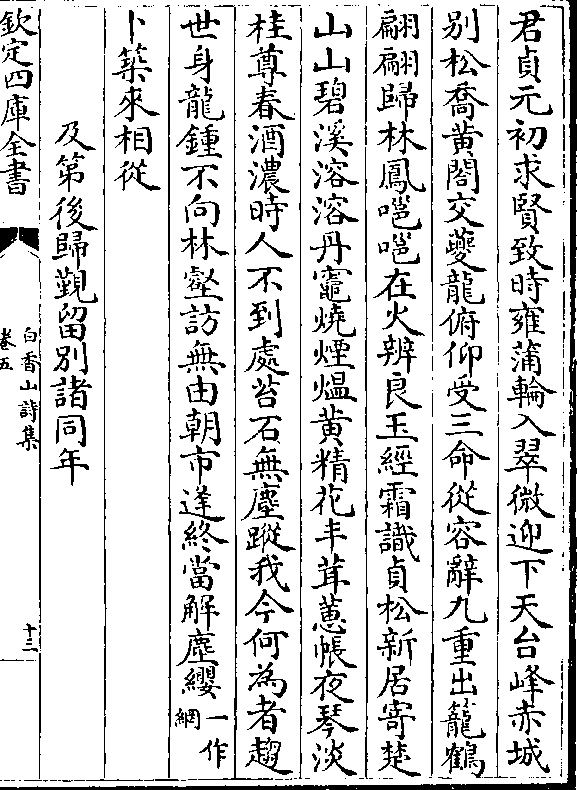 君貞元初求賢致時雍蒲輪入翠微迎下天台峰赤城
别松喬黄閤交夔龍俯仰受三命從容辭九重出籠鶴
翩翩歸林鳳嗈嗈在火辨良玉經霜識貞松新居寄楚
山山碧溪溶溶丹竈燒煙熅黄精花丰茸蕙帳夜琴淡
桂尊春酒濃時人不到處苔石無塵蹤我今何為者趨
世身龍鍾不向林壑訪無由朝市逢終當解塵纓一作網
卜築來相從
及第後歸覲留别諸同年
欽定四庫全書
白香山詩集
卷五
十三